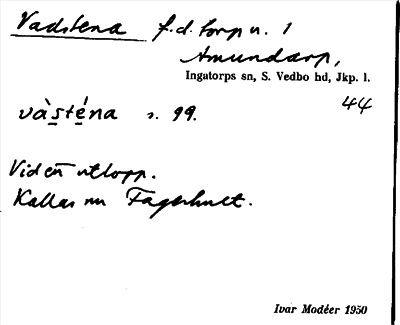 Vadstena f.d. torp u. 1
Amundarp,
Ingatorps sn, S. Vedbo hd, Jkp. l.
44
và̀sténa s. 99.
Vid en utlopp.
Kallas nu Fagerhult.
Ivar Modéer 1950